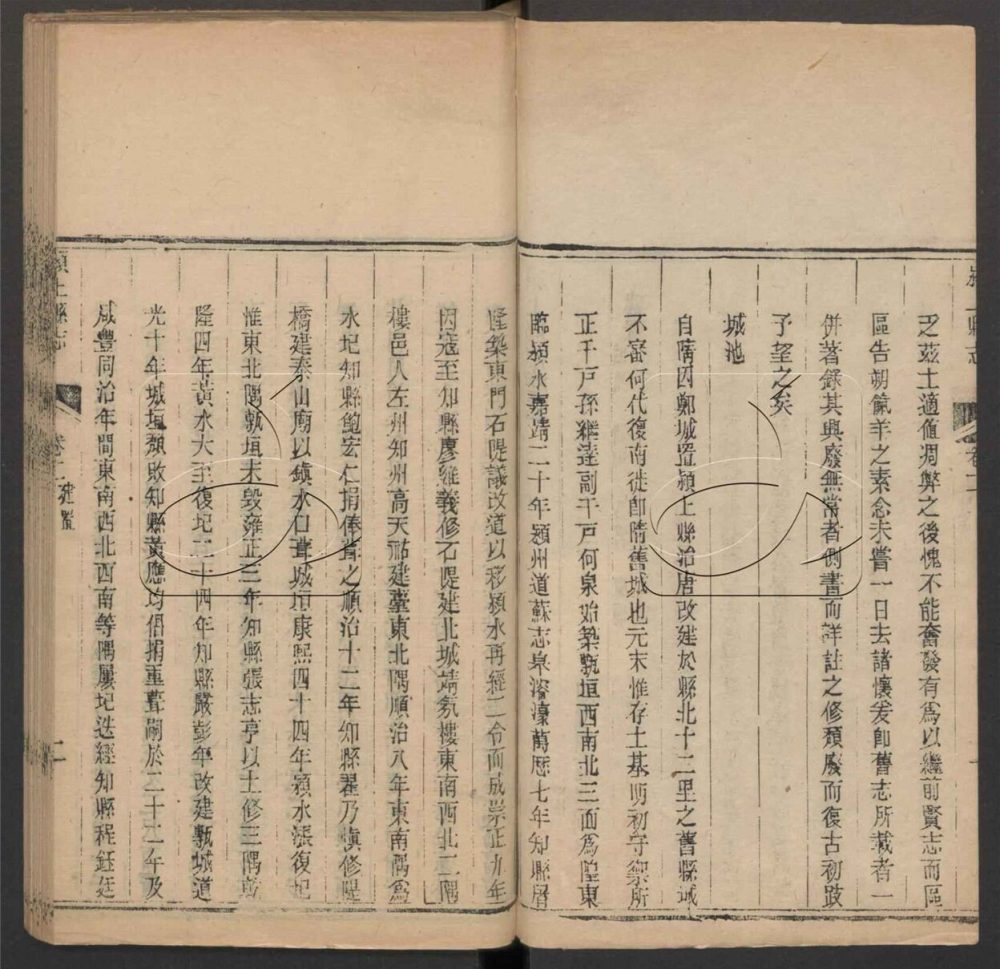 乏茲土適值凋弊之後愧不能奮發有爲以繼前賢志而區
區告朔餼羊之素念未嘗一日去諸懷爰卽舊志所載者一
併著錄其興廢無常者側書而詳註之修頹廢而復古初跂
予望之矣
城池
自隋因鄭城置潁上縣治唐改建於縣北十二里之舊縣城
不審何代復南徙卽隋舊城也元末惟存土基明初守禦所
正千戶孫繼達副千戶何泉始築甎垣西南北三面爲隍東
臨潁水嘉靖二十年潁州道蘇志皋濬濠萬歷七年知縣屠
隆築東門石隄議改道以移潁水再經二令而成崇正九年
因寇至知縣廖維義修石隄建北城靖氛樓東南西北二隅
樓邑人左州知州高天祐建臺東北隅順治八年東南隅爲
水圮知縣鮑宏仁捐俸葺之順治十二年知縣翟乃愼修隄
橋建泰山廟以鎮水口葺城垣康熙四十四年潁水漲復圮
惟東北隅甎垣未毀雍正三年知縣張志亨以土修三隅乾
隆四年黃水大至復圮二十四年知縣嚴彭年改建甎城道
光十年城垣頹敗知縣黃應均倡捐重葺嗣於二十二年及
咸豐同治年間東南西北西南等隅屢圮迭經知縣程鈺廷
潁上縣志
卷二 建置
二